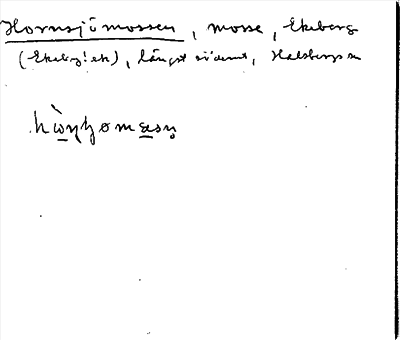 Hornsjömossen, mosse, Ekeberg
(Ekeby:ek), längst söderut, Halsbergs sn
hɷ̀ɳʂomasn̥